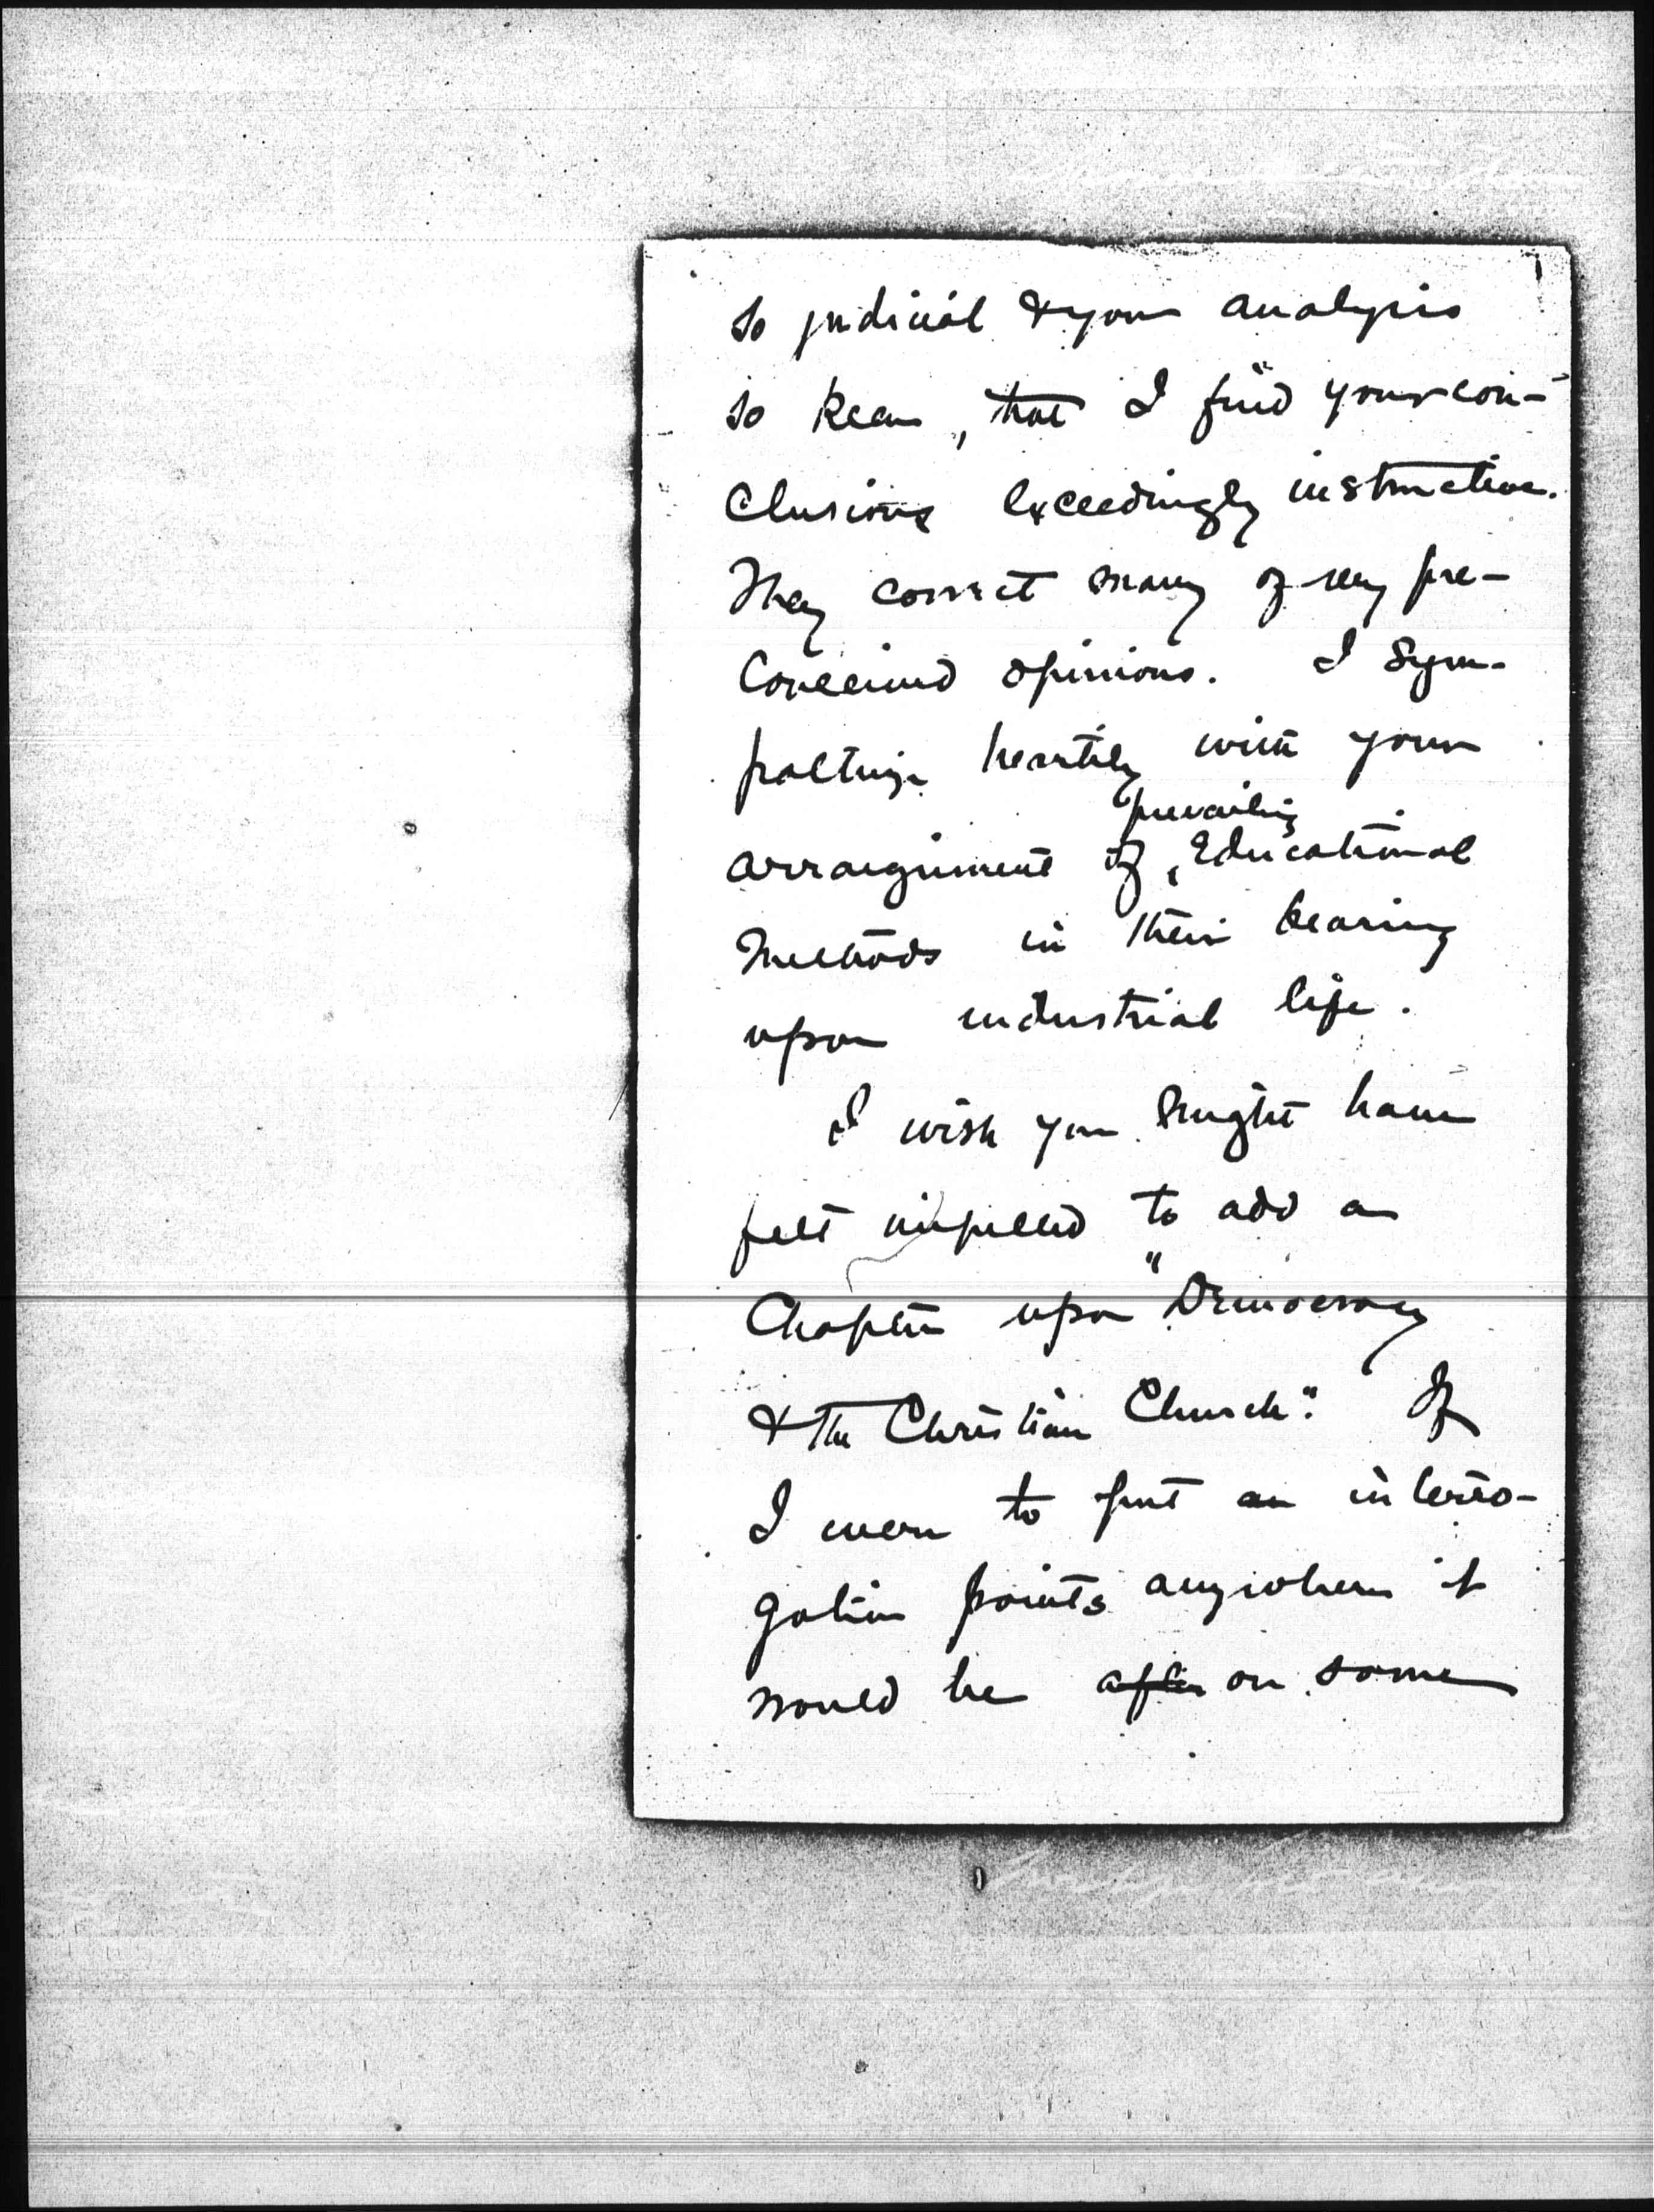 so judicial & your analysis
so keen, that I find your con-
clusions exceedingly instructive.
They correct many of my pre-
conceived opinions. I sym-
pathize heartily with your
prevailing
arraignment of Educational
methods in their bearing
upon industrial life.
I wish you might have
felt impelled to add a
Chapter upon "Democracy
& the Christian Church". If
I were to put an interro-
gation points anywhere it
would be after on some